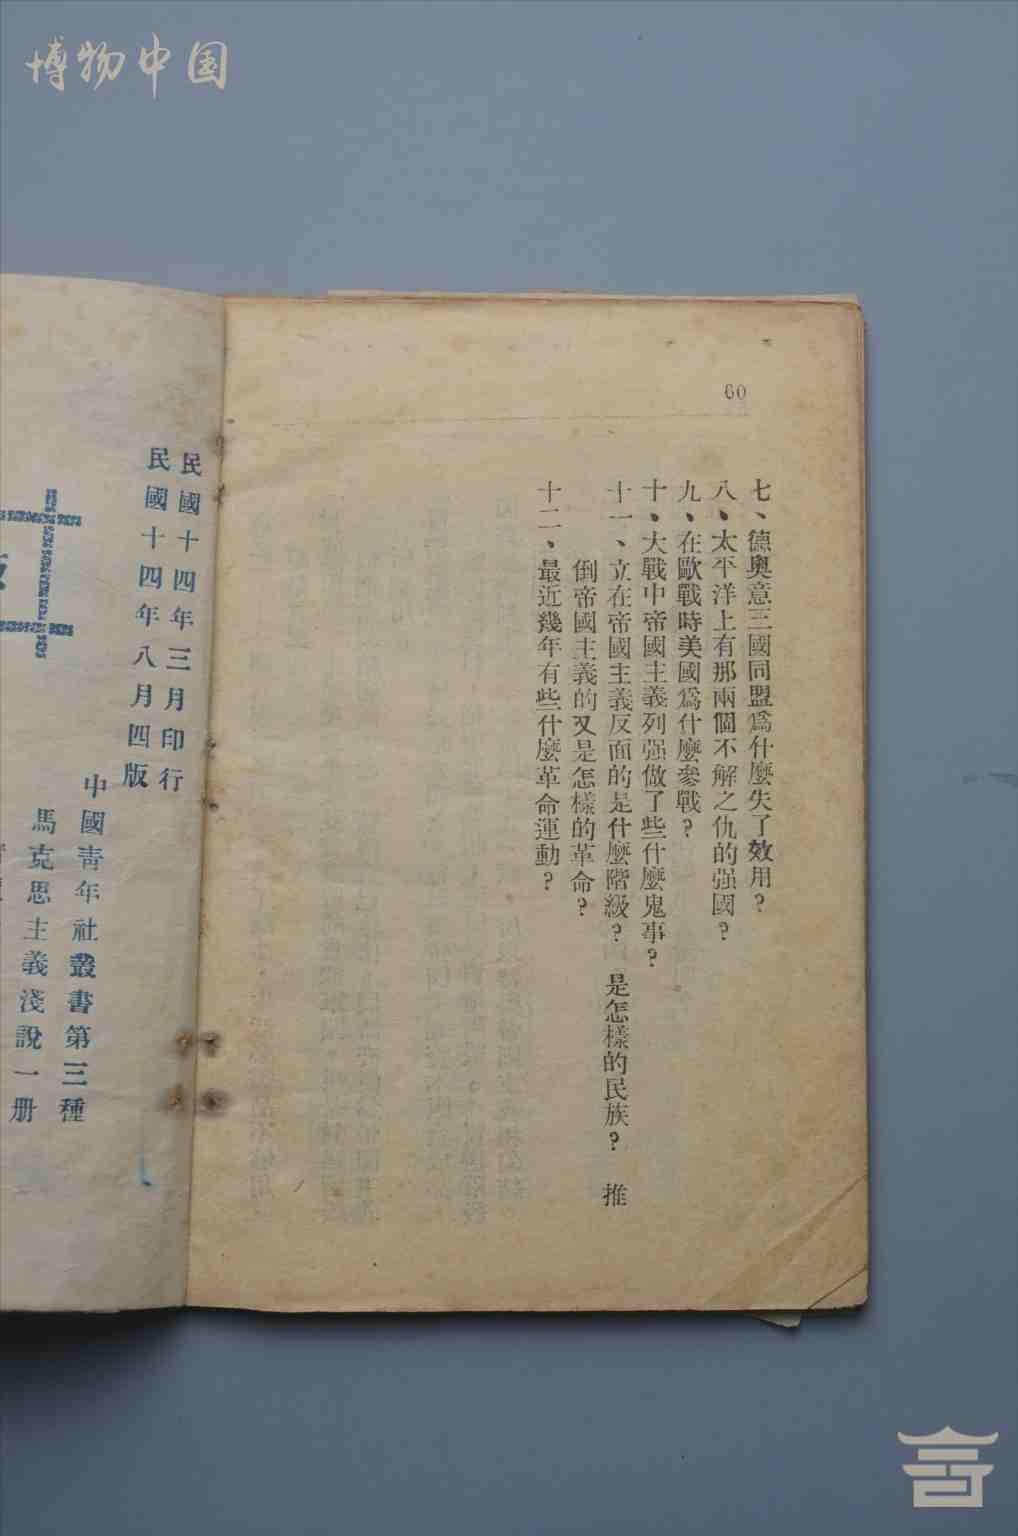 博物中国
60
七、德奧意三國同盟爲什麼失了效用？
八、太平洋上有那兩個不解之仇的强國？
九、在歐戰時美國爲什麼參戰？
十、大戰中帝國主義列强做了些什麼鬼事？
十一、立在帝國主義反面的是什麼階級？ 是怎樣的民族？ 推
倒帝國主義的又是怎樣的革命？
十二、最近幾年有些什麼革命運動？
民國十四年三月印行
民國十四年八月四版
中國靑年社叢書第三種
馬克思主義淺說一册